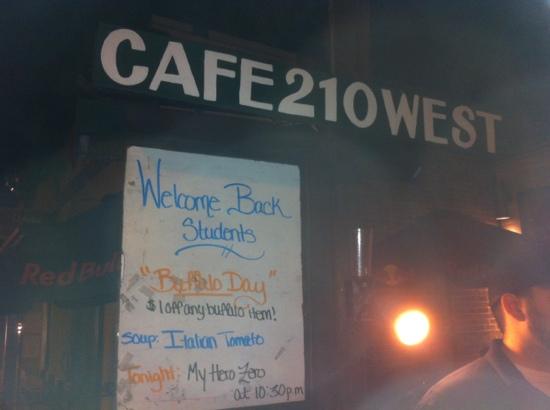 CAFE 210 WEST
Welcome Back
Students
"Buffalo Day"
$1 off any buffalo item!
Soup: Italian Tomato
Tonight: My Hero Zero
at 10:30 p.m
Red Bull